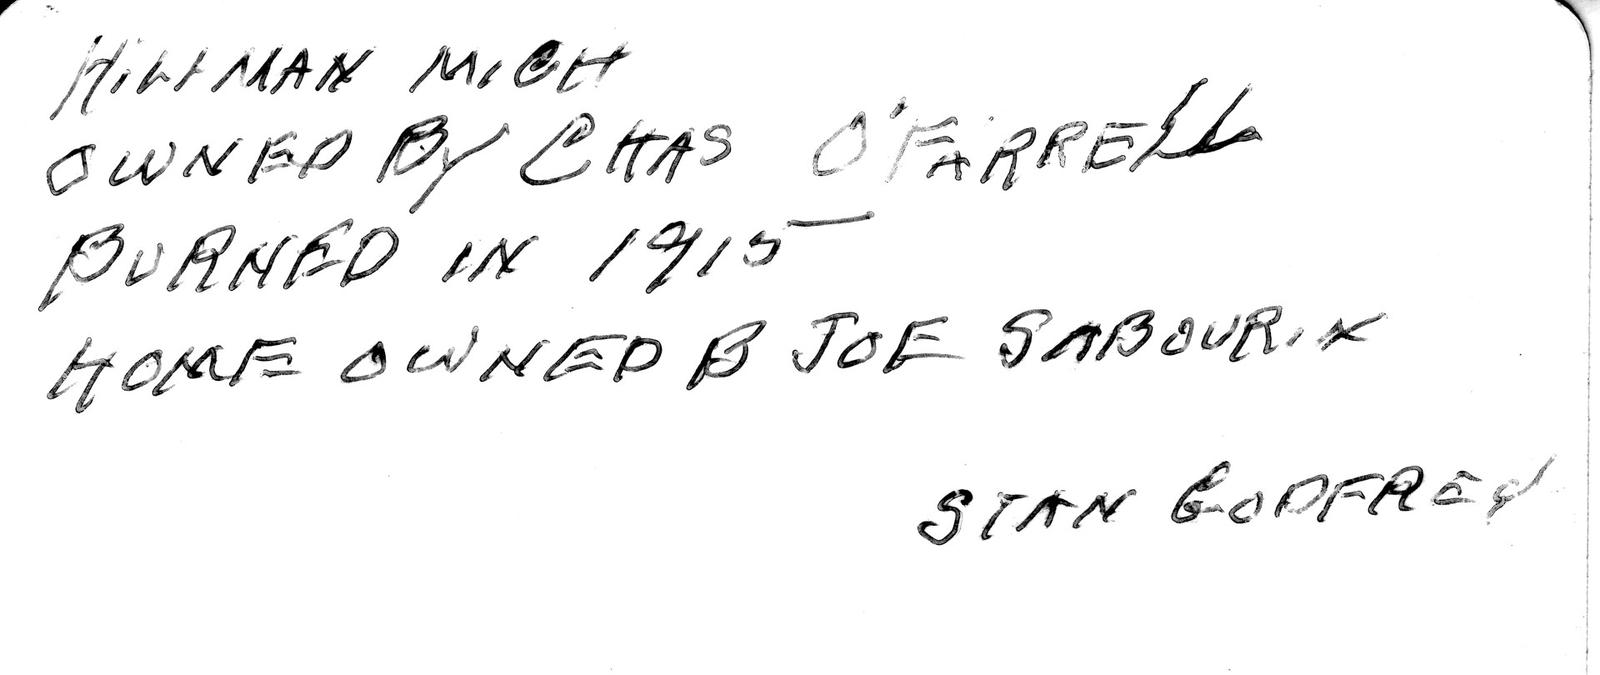 HILLMAN MICH
OWNED By CHAS O'FARRELL
BURNED IN 1915
HOME OWNED B JOE SABOURIN
STAN GODFREY